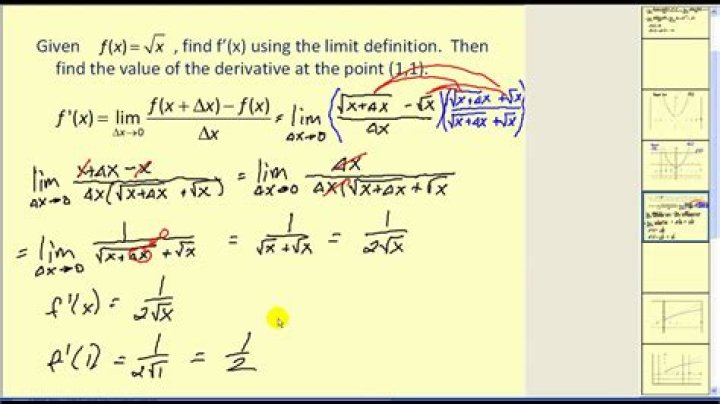 Given f(x) = √x , find f'(x) using the limit definition. Then
find the value of the derivative at the point (1,1).
f'(x) = lim Δx→0 (f(x + Δx) − f(x))/Δx = lim Δx→0 ((√(x+Δx) − √x)/Δx)((√(x+Δx) + √x)/(√(x+Δx) + √x))
lim Δx→0 (x+Δx−x)/(Δx(√(x+Δx) + √x)) = lim Δx→0 Δx/(Δx(√(x+Δx) + √x
= lim Δx→0 1/(√(x+Δx) + √x) 0 = 1/(√x + √x) = 1/(2√x)
f'(x) = 1/(2√x)
f'(1) = 1/(2√1) = 1/2